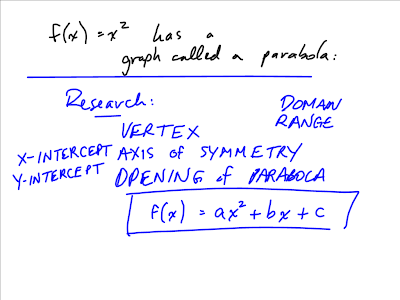 f(x) = x² has a
graph called a parabola:
Research:
DOMAIN
RANGE
VERTEX
X-INTERCEPT AXIS of SYMMETRY
Y-INTERCEPT OPENING of PARABOLA
f(x) = ax² + bx + c